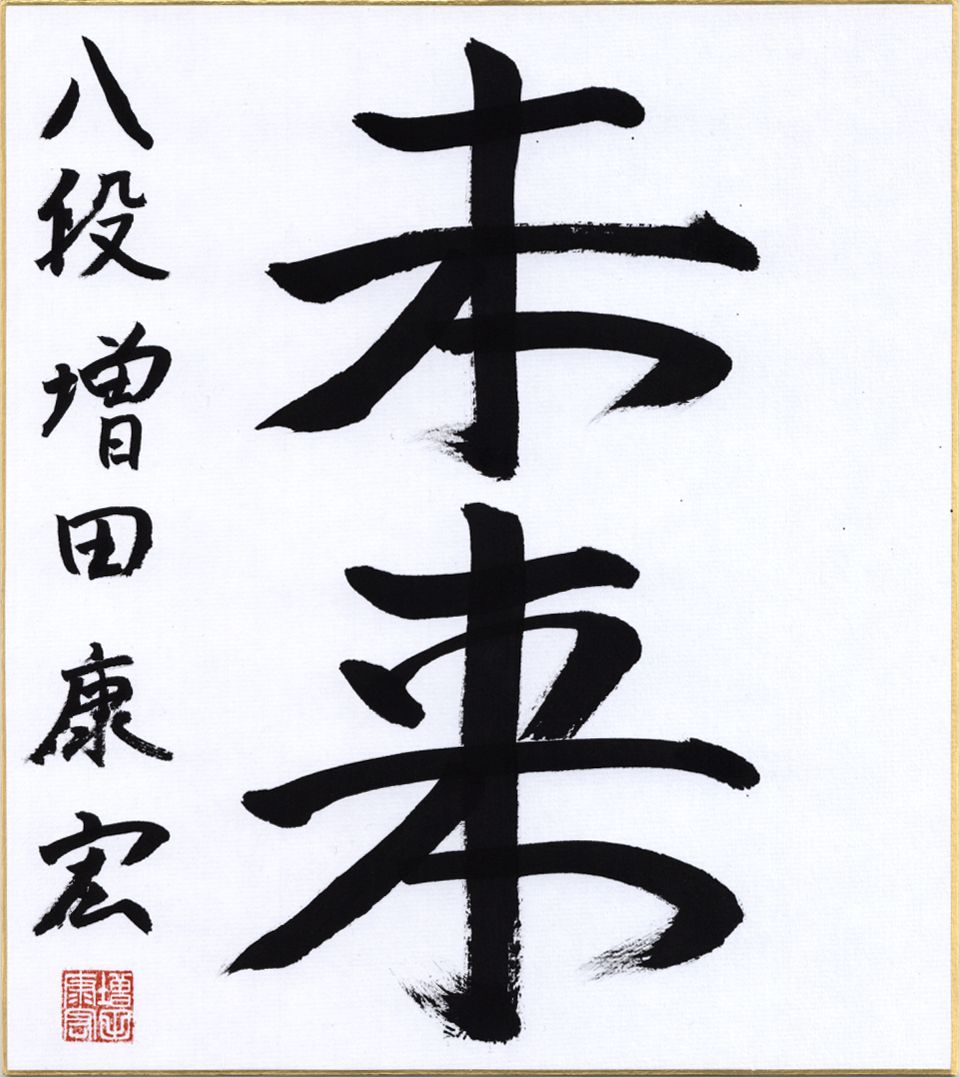 未来
八段 増田康宏
増田康宏